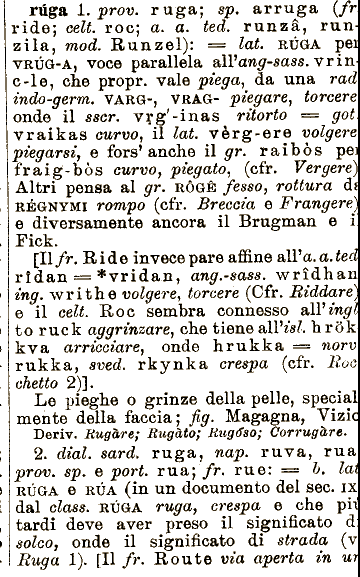 rúga 1. prov. ruga; sp. arruga (fr
ride; celt. roc; a. a. ted. runzâ, run-
zila, mod. Runzel): = lat. RÚGA per
VRÚG-A, voce parallela all'ang-sass. vrin-
c-le, che propr. vale piega, da una rad
indo-germ. VARG-, VRAG- piegare, torcere
onde il sscr. vṛg'-inas ritorto = got.
vraikas curvo, il lat. vèrg-ere volgere
piegarsi, e fors' anche il gr. raibòs per
fraig-bòs curvo, piegato, (cfr. Vergere)
Altri pensa al gr. RÔGÊ fesso, rottura di
RÉGNYMI rompo (cfr. Breccia e Frangere)
e diversamente ancora il Brugman e i
Fick.
[Il fr. Ride invece pare affine all'a. a. ted
rîdan = *vridan, ang.-sass. wrîdhan
ing. writhe volgere, torcere (Cfr. Riddare)
e il celt. Roc sembra connesso all'ingl
to ruck aggrinzare, che tiene all'isl. hrök-
kva arricciare, onde hrukka = norv
rukka, sved. rkynka crespa (cfr. Roc
chetto 2)].
Le pieghe o grinze della pelle, special
mente della faccia; fig. Magagna, Vizio
Deriv. Rugàre; Rugàto; Rugóso; Corrugàre.
2. dial. sard. ruga, nap. ruva, rua
prov. sp. e port. rua; fr. rue: = b. lat
RÚGA e RÚA (in un documento del sec. IX
dal class. RÚGA ruga, crespa e che più
tardi deve aver preso il significato d
solco, onde il significato di strada (v
Ruga 1). [Il fr. Route via aperta in un